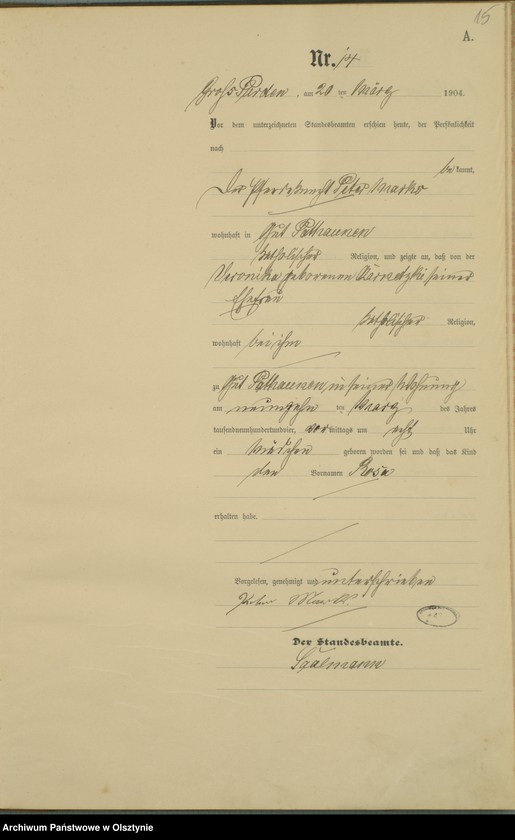 15
A.
Nr. 14
Groß Purden, am 20 ten März 1904.
Vor dem unterzeichneten Standesbeamten erschien heute, der Persönlichkeit
nach
be kannt,
Der Pferdeknecht Peter Marko
wohnhaft in Gut Pathaunen
katholischer Religion, und zeigte an, daß von der
Veronika geborenen seiner
Ehefrau
katholischer Religion,
wohnhaft bei ihm
zu Gut Pathaunen, in seiner Wohnung
am neunzehn ten März des Jahres
tausendneunhundertundvier, vor mittags um acht Uhr
ein Mädchen geboren worden sei und daß das Kind
den Vornamen Rosa
erhalten habe.
Vorgelesen, genehmigt und unterschrieben
Der Standesbeamte.
Saalmann
Archiwum Państwowe w Olsztynie